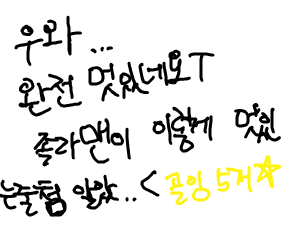 우와...
완전 멋있네요T
졸라맨이 이렇게 멋있
는줄첨 알았..<골잉5거☆